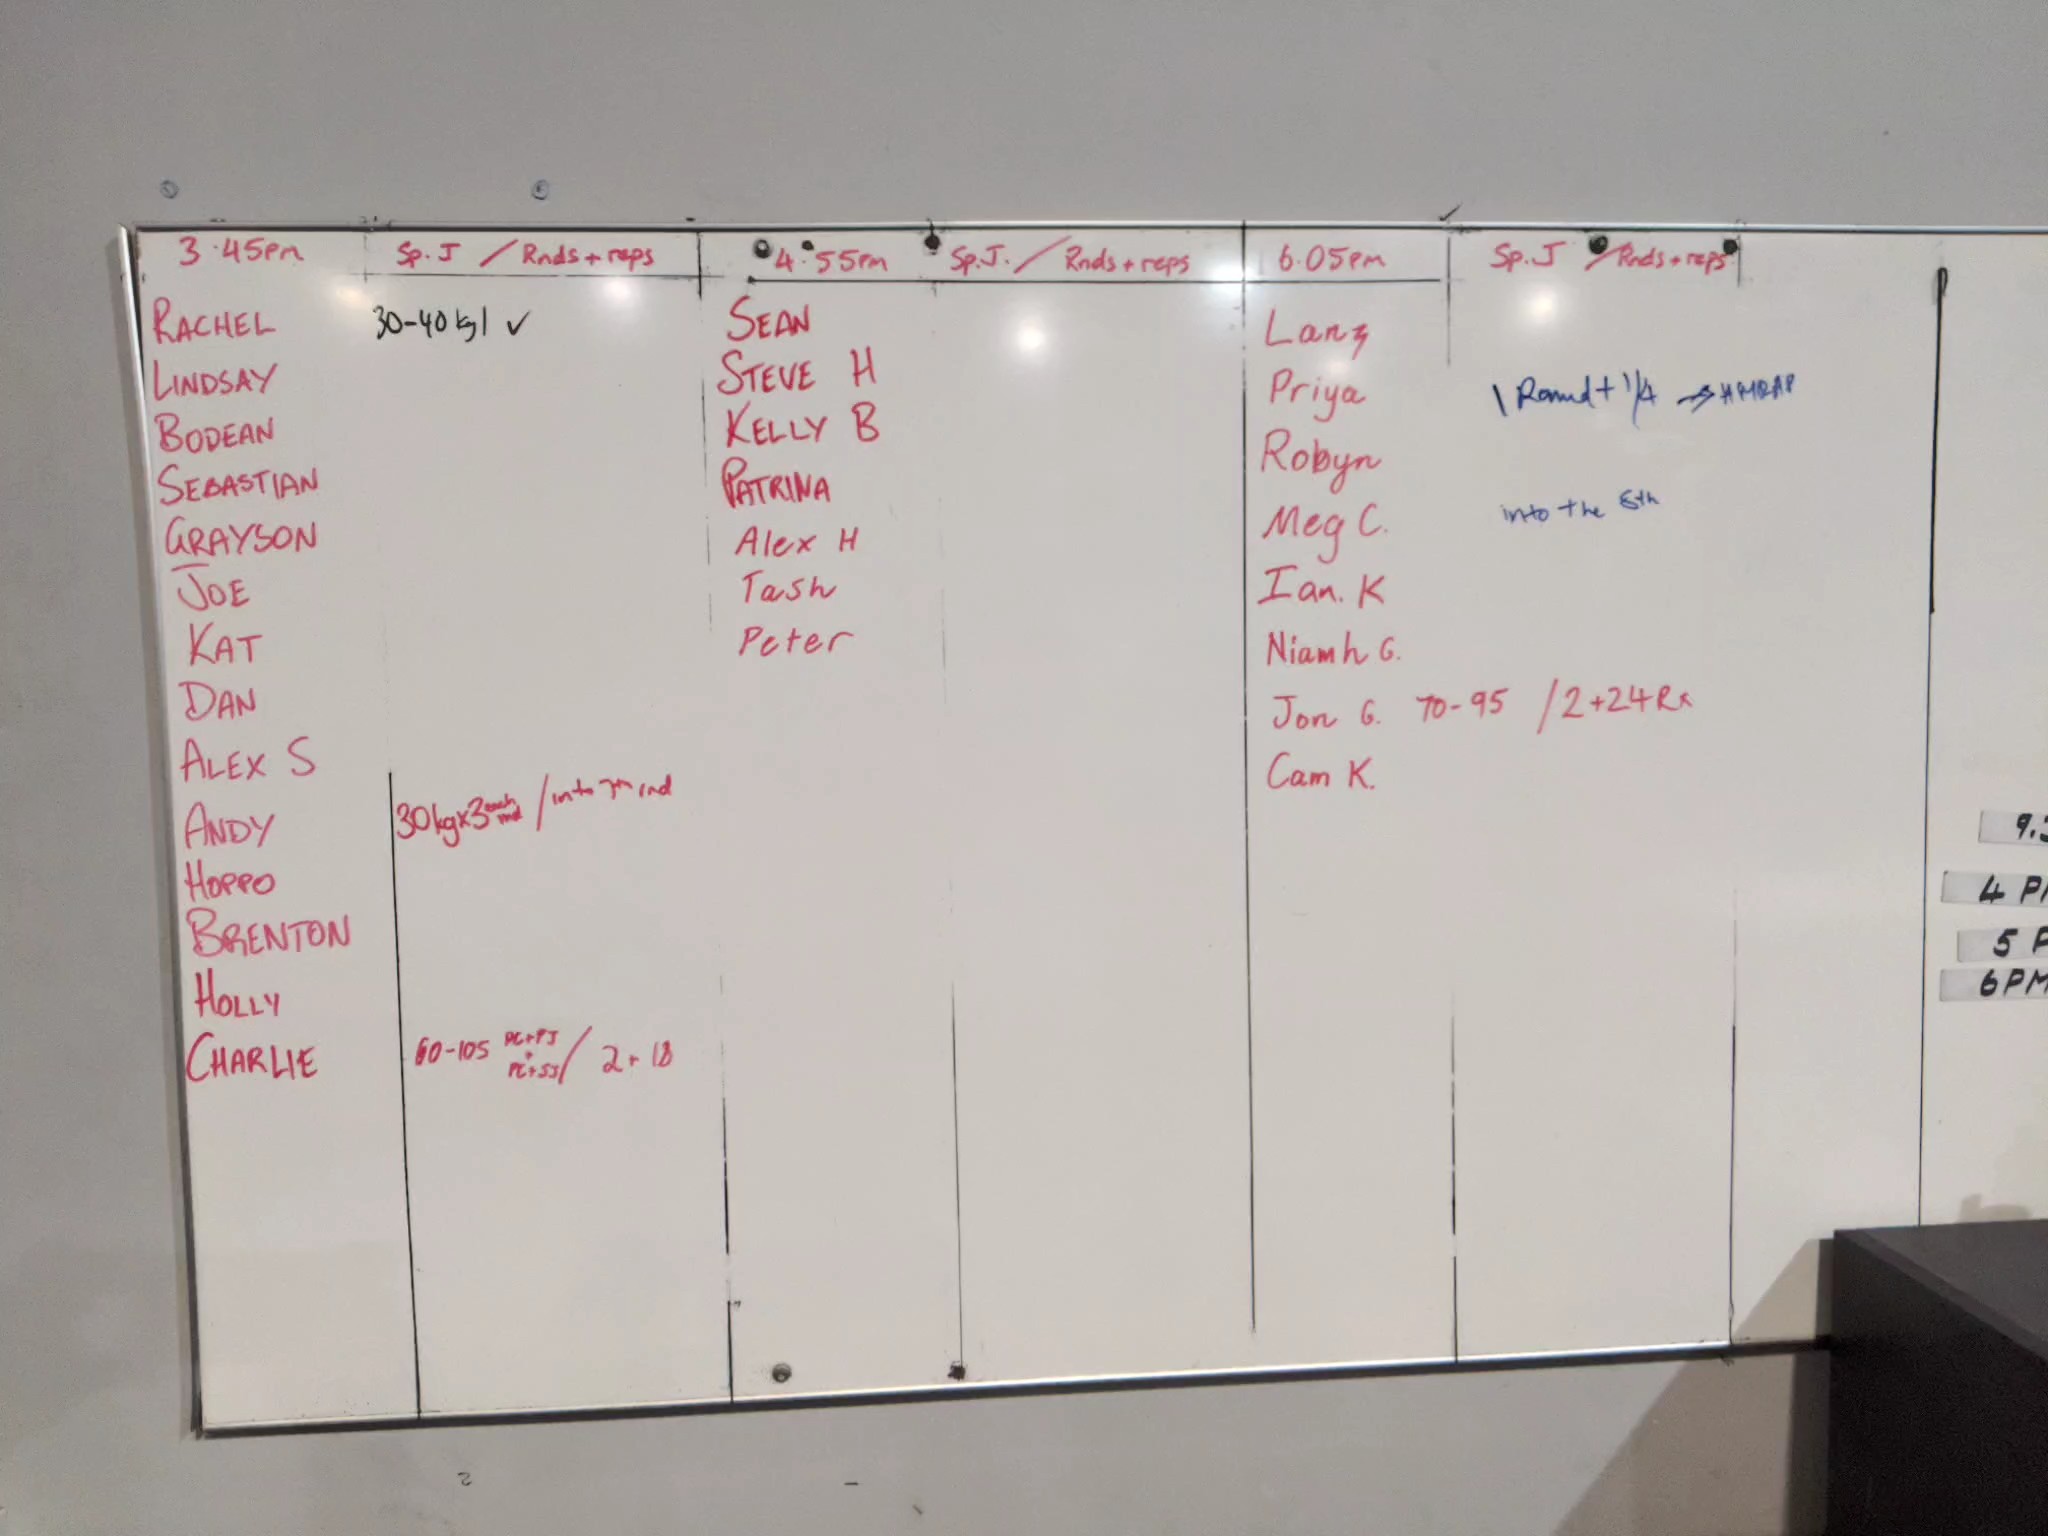 3.45pm Sp.J / Rnds + reps 4.55pm Sp.J. / Rnds + reps 6.05pm Sp.J / Rnds + reps
RACHEL 30-40kg | ✓ SEAN Lanz
LINDSAY STEVE H Priya 1 Round + 1/4 → AMRAP
BODEAN KELLY B Robyn
SEBASTIAN PATRINA Meg C. into the
GRAYSON Alex H Ian. K
JOE Tash Niamh G.
KAT Peter Jon G. 70-95 / 2+24 Rx
DAN Cam K.
ALEX S
ANDY 30kg x 3 each rnd / into 7th rnd
HOPPO 4 P
BRENTON 5 P
HOLLY 6PM
CHARLIE 60-105 PC+PJ + PC+SJ / 2 + 18